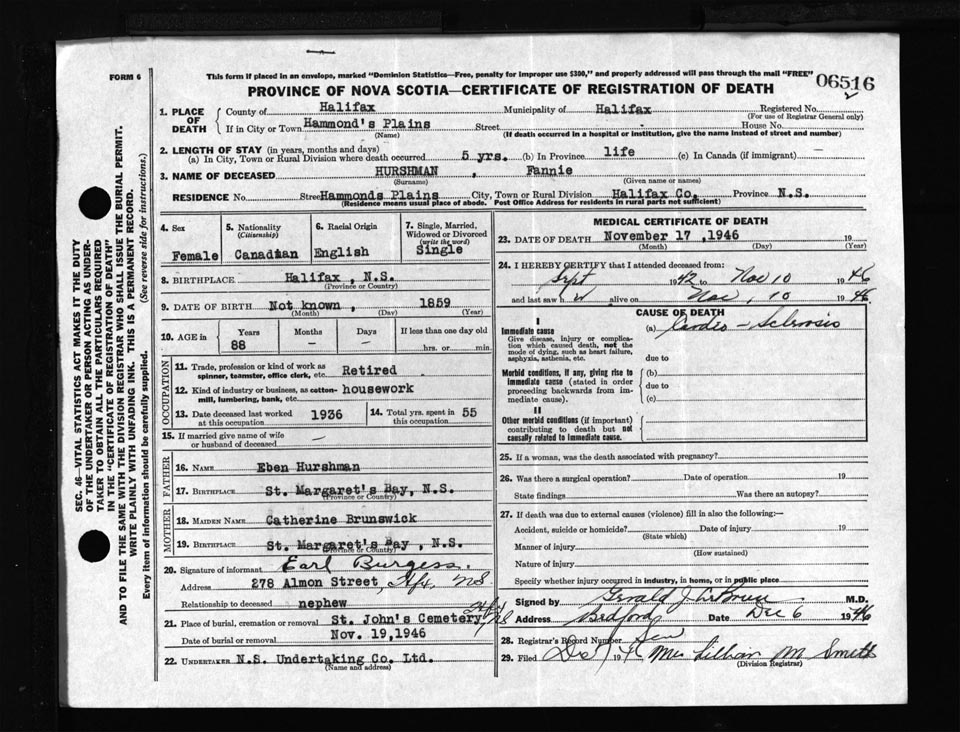 FORM 6
This form if placed in an envelope, marked "Dominion Statistics—Free, penalty for improper use $300," and properly addressed will pass through the mail "FREE"
06516
PROVINCE OF NOVA SCOTIA—CERTIFICATE OF REGISTRATION OF DEATH
1. PLACE OF DEATH County of Halifax Municipality of Halifax Registered No.
(For use of Registrar General only)
If in City or Town Hammond's Plains Street House No.
(Name) (If death occurred in a hospital or institution, give the name instead of street and number)
2. LENGTH OF STAY (in years, months and days)
(a) In City, Town or Rural Division where death occurred 5 yrs. (b) In Province life (c) In Canada (if immigrant) —
3. NAME OF DECEASED HURSHMAN, Fannie
(Surname) (Given name or names)
RESIDENCE No. Street Hammonds Plains City, Town or Rural Division Halifax Co. Province N.S.
(Residence means usual place of abode. Post Office Address for residents in rural parts not sufficient)
4. Sex Female
5. Nationality (Citizenship) Canadian
6. Racial Origin English
7. Single, Married, Widowed or Divorced (write the word) Single
8. BIRTHPLACE Halifax, N.S.
(Province or Country)
9. DATE OF BIRTH Not known, 1859
(Month) (Day) (Year)
10. AGE in Years Months Days If less than one day old
88 — — hrs. or min.
OCCUPATION
11. Trade, profession or kind of work as spinner, teamster, office clerk, etc. Retired
12. Kind of industry or business, as cotton-mill, lumbering, bank, etc. housework
13. Date deceased last worked at this occupation 1936
14. Total yrs. spent in this occupation 55
15. If married give name of wife or husband of deceased —
FATHER
16. NAME Eben Hurshman
17. BIRTHPLACE St. Margaret's Bay, N.S.
(Province or Country)
MOTHER
18. MAIDEN NAME Catherine Brunswick
19. BIRTHPLACE St. Margaret's Bay, N.S.
(Province or Country)
20. Signature of informant Earl Burgess.
Address 278 Almon Street, Hfx. NS
Relationship to deceased nephew
21. Place of burial, cremation or removal St. John's Cemetery Hfx NS
Date of burial or removal Nov. 19, 1946
22. UNDERTAKER N.S. Undertaking Co. Ltd.
(Name and address)
MEDICAL CERTIFICATE OF DEATH
23. DATE OF DEATH November 17, 1946 19
(Month) (Day) (Year)
24. I HEREBY CERTIFY that I attended deceased from:
Sept 1942 to Nov 10 1946
and last saw her alive on Nov, 10 1946
CAUSE OF DEATH
I
Immediate cause (a) Cardio-Sclerosis
Give disease, injury or complication which caused death, not the mode of dying, such as heart failure, asphyxia, asthenia, etc.
due to
Morbid conditions, if any, giving rise to immediate cause (stated in order proceeding backwards from immediate cause).
(b)
due to
(c)
II
Other morbid conditions (if important) contributing to death but not causally related to immediate cause.
25. If a woman, was the death associated with pregnancy?
26. Was there a surgical operation? Date of operation 19
State findings Was there an autopsy?
27. If death was due to external causes (violence) fill in also the following:—
Accident, suicide or homicide? Date of injury 19
(State which)
Manner of injury
(How sustained)
Nature of injury
Specify whether injury occurred in industry, in home, or in public place
Signed by Gerald J. M.D.
Address Bedford Date Dec 6 1946
28. Registrar's Record Number
29. Filed 19 Mrs Lillian M Smith
(Division Registrar)
SEC. 46—VITAL STATISTICS ACT MAKES IT THE DUTY
OF THE UNDERTAKER OR PERSON ACTING AS UNDER-
TAKER TO OBTAIN ALL THE PARTICULARS REQUIRED
IN THE "CERTIFICATE OF REGISTRATION OF DEATH"
AND TO FILE THE SAME WITH THE DIVISION REGISTRAR WHO SHALL ISSUE THE BURIAL PERMIT.
WRITE PLAINLY WITH UNFADING INK. THIS IS A PERMANENT RECORD.
Every item of information should be carefully supplied. (See reverse side for instructions.)